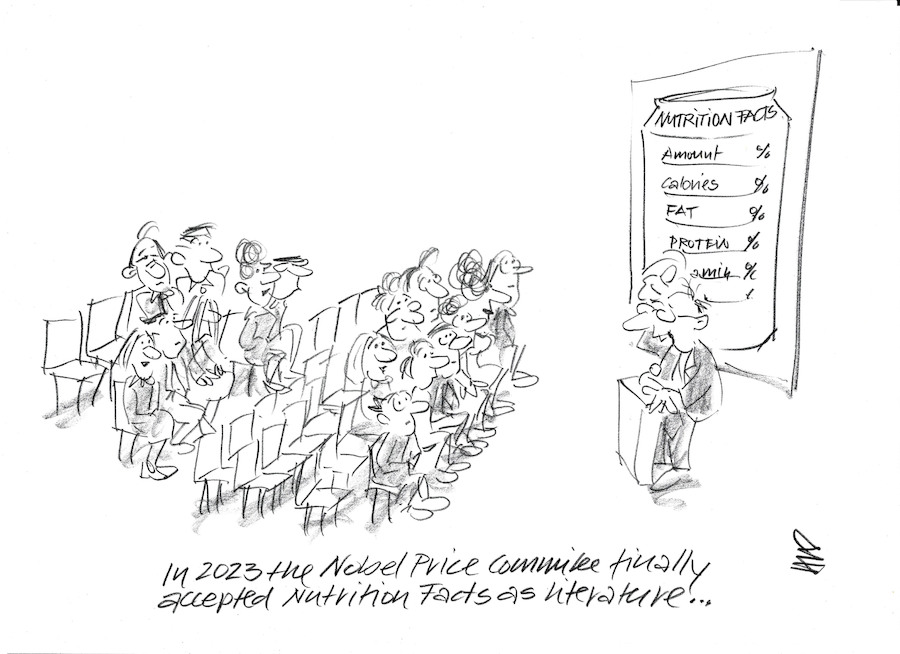 NUTRITION FACTS
Amount %
Calories %
FAT %
PROTEIN %
amin %
In 2023 the Nobel Price Committee finally
accepted Nutrition Facts as literature...